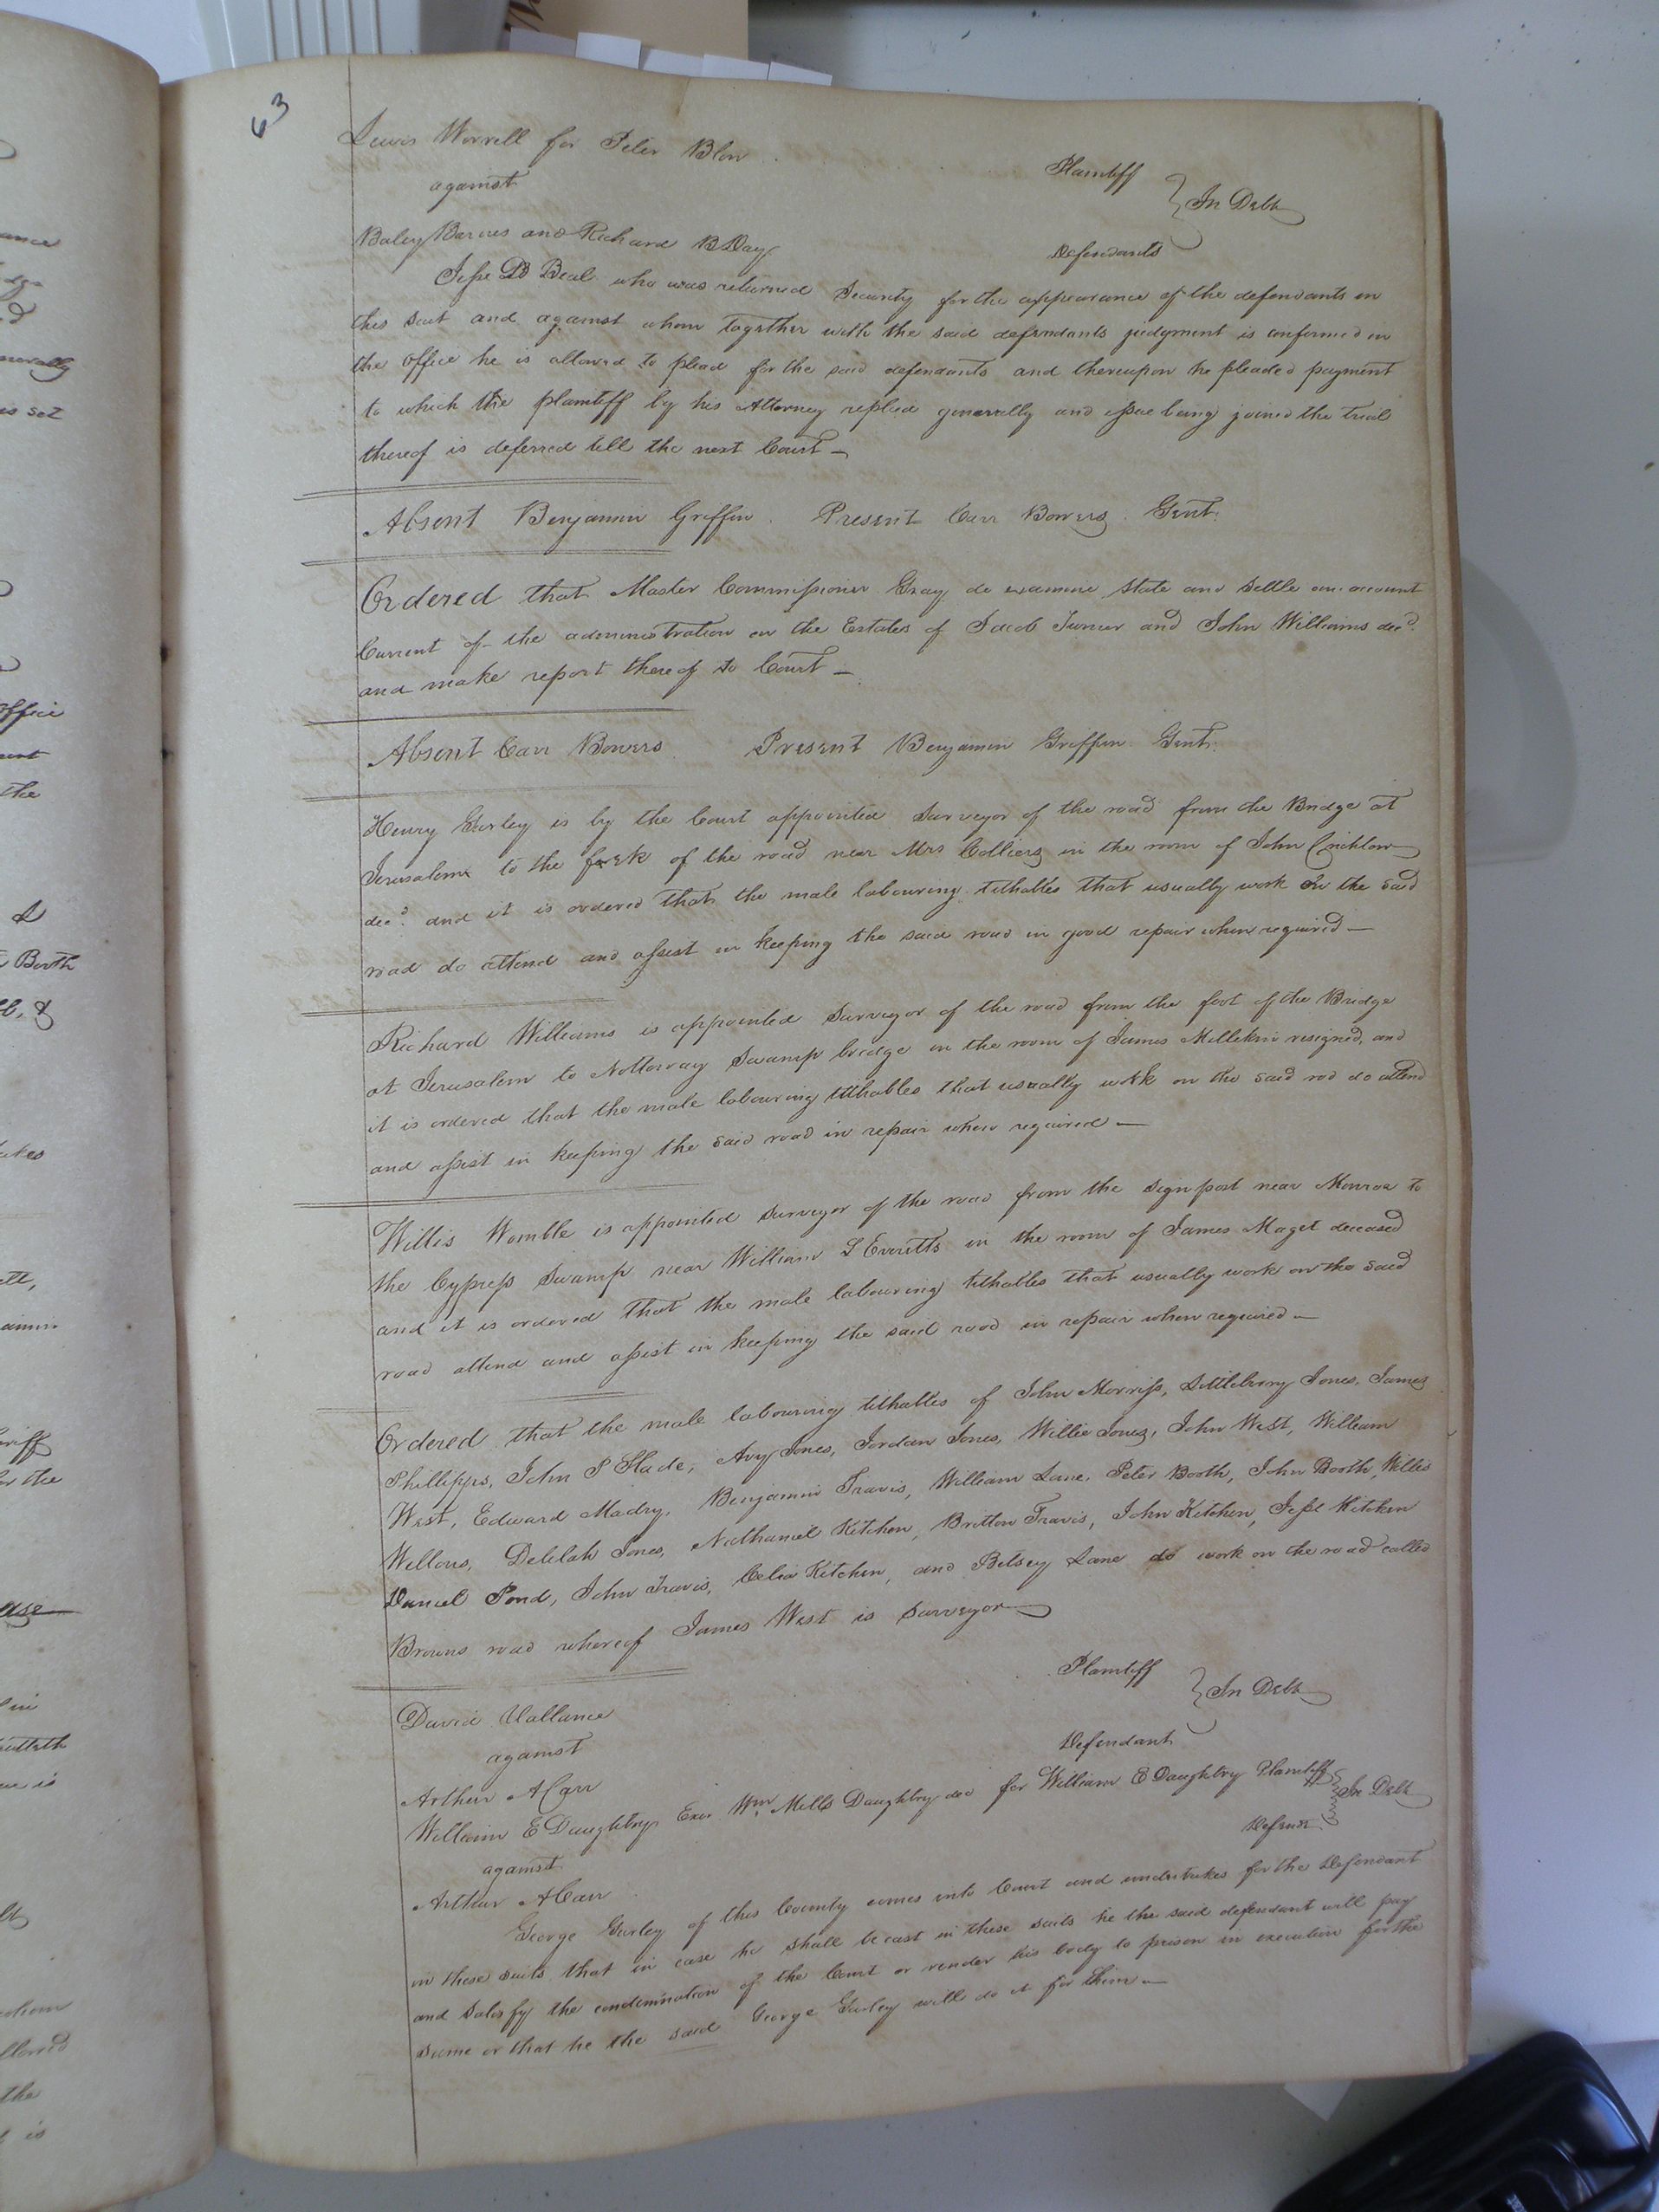 63
Lewis Worrell for Peter Blow Plaintiff
against } In Debt
Baley Barnes and Richard B Day Defendants
Jesse B Beal who was returned Security for the appearance of the defendants in
this suit and against whom together with the said defendants judgment is confirmed in
the office he is allowed to plead for the said defendants and thereupon he pleaded payment
to which the plaintiff by his Attorney replied generally and issue being joined the trial
thereof is deferred till the next Court —
Absent Benjamin Griffin. Present Carr Bowers Gent.
Ordered that Master Commissioner Gray do examine State and Settle an account
Current of the administration on the Estates of Jacob Turner and John Williams decd.
and make report thereof to Court —
Absent Carr Bowers Present Benjamin Griffin Gent.
Henry Gurley is by the Court appointed Surveyor of the road from the Bridge at
Jerusalem to the fork of the road near Mrs Colliers in the room of John Crichlow
decd. and it is ordered that the male labouring tithables that usually work on the said
road do attend and assist in keeping the said road in good repair when required —
Richard Williams is appointed Surveyor of the road from the foot of the Bridge
at Jerusalem to Nottoway Swamp bridge in the room of James Millikin resigned, and
it is ordered that the male labouring tithables that usually work on the said rod do attend
and assist in keeping the said road in repair when required —
Willis Womble is appointed Surveyor of the road from the sign post near Monroe to
the Cypress Swamp near William L Everitts in the room of James Maget deceased
and it is ordered that the male labouring tithables that usually work on the said
road attend and assist in keeping the said road in repair when required —
Ordered that the male labouring tithables of John Morriss, Littleberry Jones, James
Phillipps, John P Slade, Avy Jones, Jordan Jones, Willie Jones, John West, William
West, Edward Madry, Benjamin Travis, William Lane, Peter Booth, John Booth, Willis
Wellons, Delilah Jones, Nathaniel Kitchen, Britton Travis, John Kitchen, Jesse Kitchen
Daniel Pond, John Travis, Celia Kitchen, and Betsey Lane do work on the road called
Browns road whereof James West is Surveyor
David Vallance Plaintiff
against } In Debt
Arthur A Carr Defendant
William E Daughtry Exor Wm. Mills Daughtry decd for William E Daughtry Plaintiff } In Debt
against Defendt.
Arthur A Carr
George Gurley of this County comes into Court and undertakes for the Defendant
in these suits that in case he shall be cast in these suits he the said defendant will pay
and Satisfy the condemnation of the Court or render his body to prison in execution for the
same or that he the said George Gurley will do it for him —